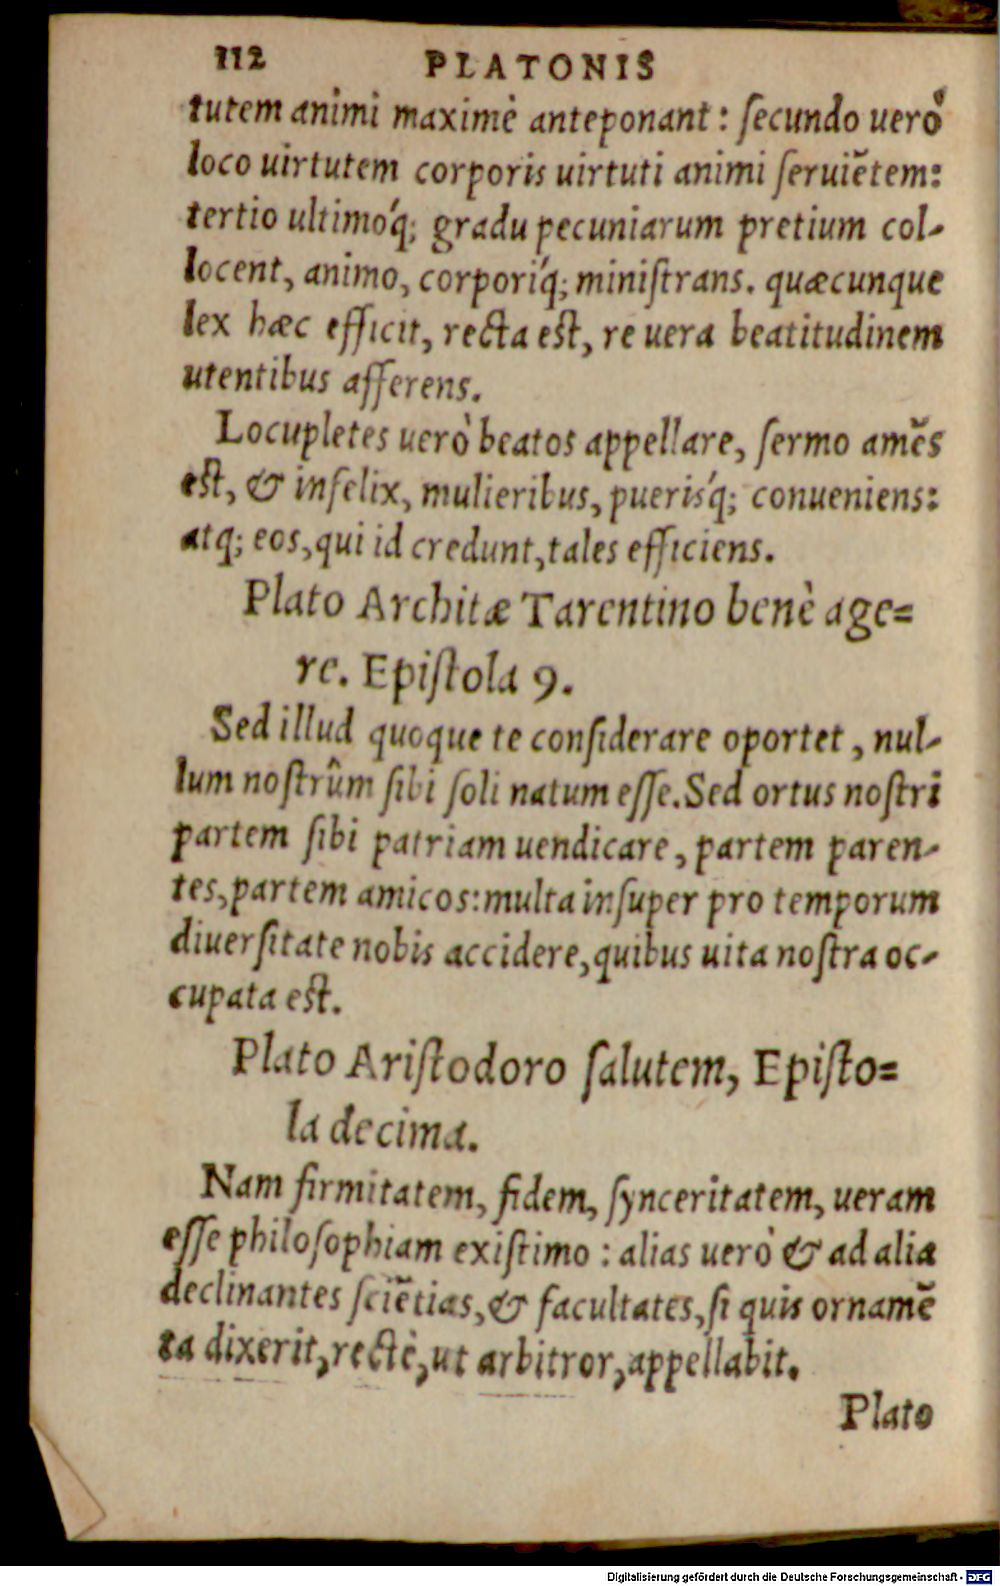 112 PLATONIS
tutem animi maximè anteponant: ſecundo uerò
loco uirtutem corporis uirtuti animi ſeruiẽtem:
tertio ultimóq; gradu pecuniarum pretium col-
locent, animo, corporíq; miniſtrans. quæcunque
lex hæc efficit, recta eſt, re uera beatitudinem
utentibus afferens.
Locupletes uerò beatos appellare, ſermo amẽs
eſt, & infelix, mulieribus, puerisq́; conueniens:
atq; eos, qui id credunt, tales efficiens.
Plato Architæ Tarentino benè age=
re. Epiſtola 9.
Sed illud quoque te conſiderare oportet, nul-
lum noſtrûm ſibi ſoli natum eſſe. Sed ortus noſtri
partem ſibi patriam uendicare, partem paren-
tes, partem amicos: multa inſuper pro temporum
diuerſitate nobis accidere, quibus uita noſtra oc-
cupata eſt.
Plato Ariſtodoro ſalutem, Epiſto=
la decima.
Nam firmitatem, fidem, ſynceritatem, ueram
eſſe philoſophiam exiſtimo: alias uerò & ad alia
declinantes ſciẽtias, & facultates, ſi quis ornamẽ
ta dixerit, rectè, ut arbitror, appellabit.
Plato
Digitalisierung gefördert durch die Deutsche Forschungsgemeinschaft - DFG